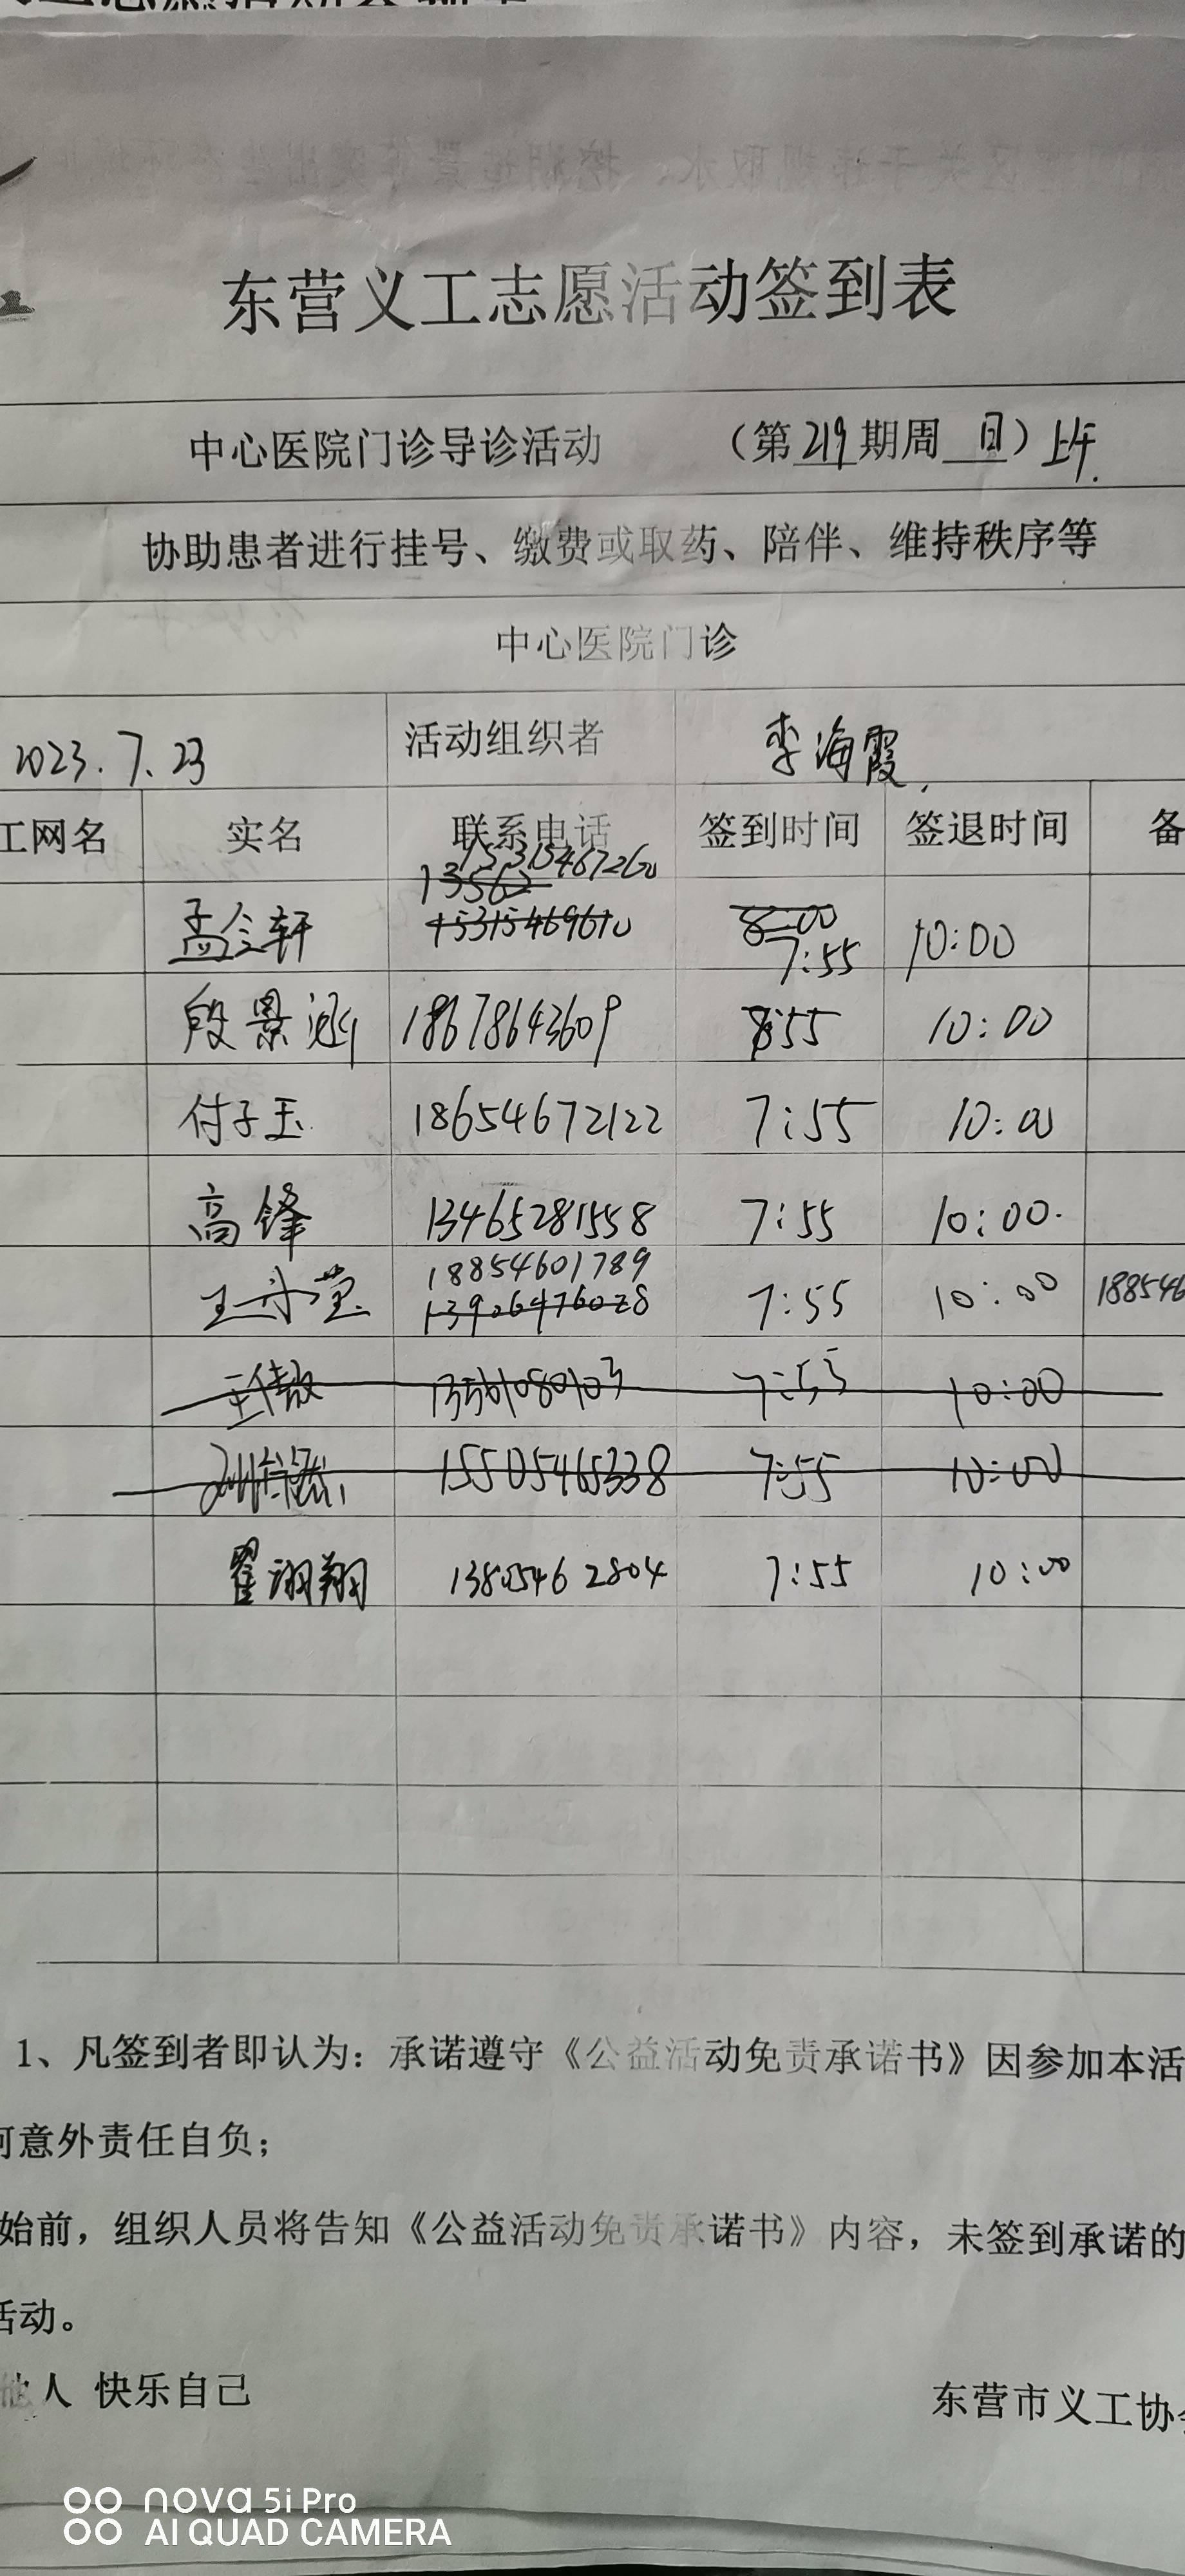 东营义工志愿活动签到表
中心医院门诊导诊活动 （第219期周 日）上午.
协助患者进行挂号、缴费或取药、陪伴、维持秩序等
中心医院门诊
2023.7.23 活动组织者 李海霞
工网名 实名 联系电话 签到时间 签退时间 备
15315467260
13562
孟令轩 15315469610 8:00 7:55 10:00
殷景涵 18678643609 7:55 10:00
付子玉 18654672122 7:55 10:00
高锋 13465281558 7:55 10:00.
18854601789
王丹莹 13926476028 7:55 10:00 188546
7:55 10:00
15505465338 7:55 10:00
翟翊翔 13805462804 7:55 10:00
1、凡签到者即认为：承诺遵守《公益活动免责承诺书》因参加本活
何意外责任自负；
始前，组织人员将告知《公益活动免责承诺书》内容，未签到承诺的
活动。
他人 快乐自己
东营市义工协会
nova 5i Pro
AI QUAD CAMERA